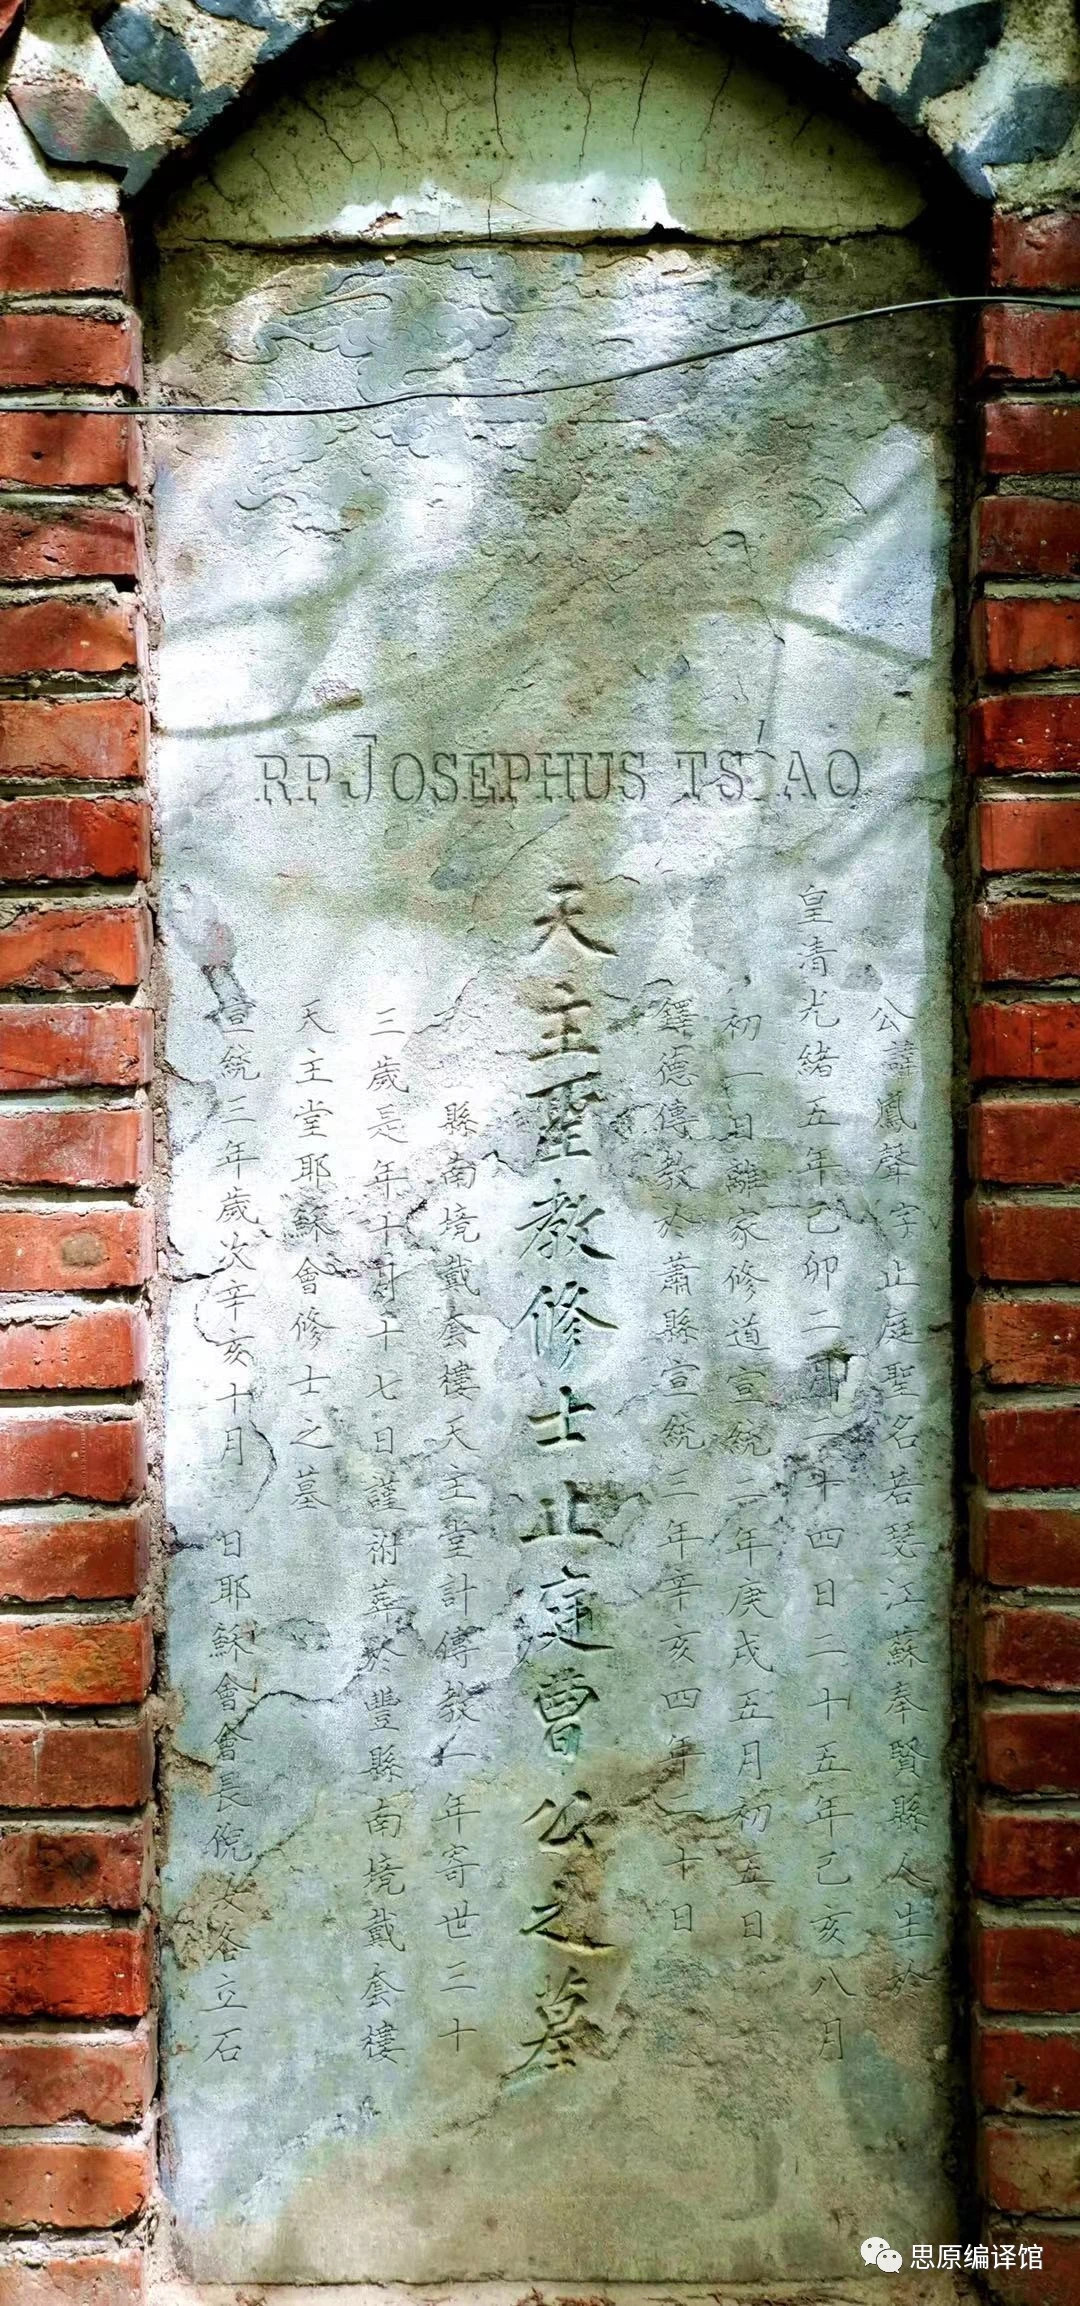 RP JOSEPHUS TS'AO
公諱鳳聲字止庭聖名若瑟江蘇奉賢縣人生於
皇清光緒五年己卯二月二十四日二十五年己亥八月
初一日離家修道宣統二年庚戌五月初五日
鐸德傳教於蕭縣宣統三年辛亥四年二十日
天主聖教修士止庭曹公之墓
縣南境戴套樓天主堂計傳教一年寄世三十
三歲是年十月十七日謹祔葬於豐縣南境戴套樓
天主堂耶穌會修士之墓
宣統三年歲次辛亥十月 日耶穌會會長倪 各立石
思原编译馆